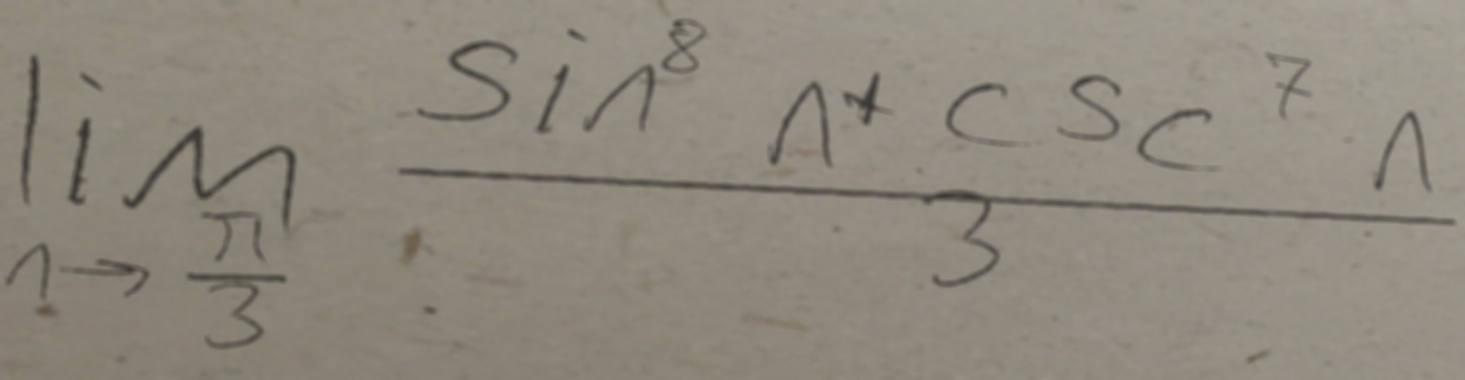 lim n→π/3 (sin⁸ n + csc⁷ n)/3